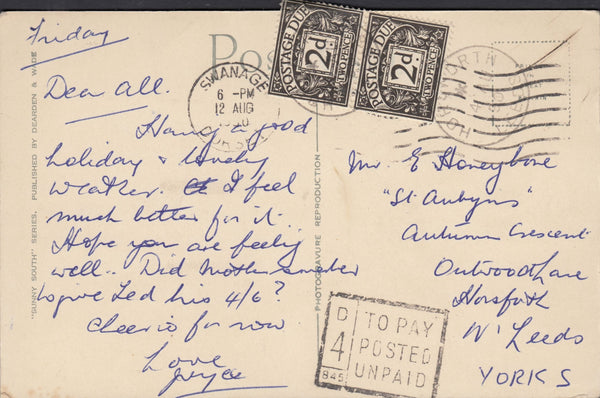 Friday
Post
Dear All.
Having a good
holiday & lovely
weather. I feel
much better for it.
Hope you are feeling
well. Did Mother
to give Ted his 4/6?
Cheerio for now.
Love
Joyce
"SUNNY SOUTH" SERIES, PUBLISHED BY DEARDEN & WADE
PHOTOGRAVURE REPRODUCTION
POSTAGE DUE
2d
TWO PENCE
POSTAGE DUE
2d
TWO PENCE
SWANAGE
6 - PM
12 AUG
DORSET
HORSFORTH
Mr. E Honeybone
"St. Aubyns"
Autumn Crescent
Outwood Lane
Horsforth
Nr Leeds
YORKS
D
4
845
TO PAY
POSTED
UNPAID